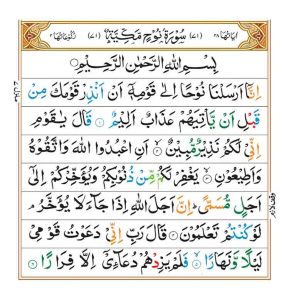 اٰیَاتُهَا ٢٨ (٧١) سُوْرَةُ نُوْحٍ مَّكِّیَّةٌ (٧١) رُكُوْعَاتُهَا ٢
بِسْمِ اللّٰهِ الرَّحْمٰنِ الرَّحِیْمِ
اِنَّاۤ اَرْسَلْنَا نُوْحًا اِلٰی قَوْمِهٖۤ اَنْ اَنْذِرْ قَوْمَكَ مِنْ
قَبْلِ اَنْ یَّاْتِیَهُمْ عَذَابٌ اَلِیْمٌ ۝ قَالَ یٰقَوْمِ
اِنِّیْ لَكُمْ نَذِیْرٌ مُّبِیْنٌ ۝ اَنِ اعْبُدُوا اللّٰهَ وَاتَّقُوْهُ
وَاَطِیْعُوْنِ ۝ یَغْفِرْ لَكُمْ مِّنْ ذُنُوْبِكُمْ وَیُؤَخِّرْكُمْ اِلٰۤی
اَجَلٍ مُّسَمًّی ؕ اِنَّ اَجَلَ اللّٰهِ اِذَا جَآءَ لَا یُؤَخَّرُ ۘ
لَوْ كُنْتُمْ تَعْلَمُوْنَ ۝ قَالَ رَبِّ اِنِّیْ دَعَوْتُ قَوْمِیْ
لَیْلًا وَّنَهَارًا ۝ فَلَمْ یَزِدْهُمْ دُعَآءِیْۤ اِلَّا فِرَارًا ۝